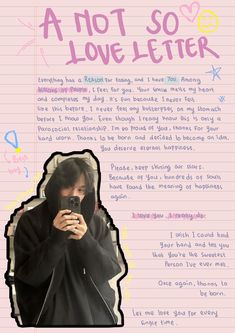 A NOT SO
LOVE LETTER
Everything has a Reason for being, and I have You. Among
billions of People, I feel for you. Your smile melts my heart
and completes my day. It's fun because I never felt
like this before. I never feel any butterflies on my stomach
before I know You. Even though I really know this is only a
Parasocial relationship. I'm so proud of you, thanks for your
hard work. Thanks to be born and decided to become an idol.
You deserve eternal happiness.
Please, keep shining our stars.
Because of you, hundreds of souls
have found the meaning of happiness
again.
I love you, I really do.
I wish I could hold
Your hand and tell you
that you're the sweetest
Person I've ever met.
Once again, thanks to
be born.
Let me love you for every
single time.